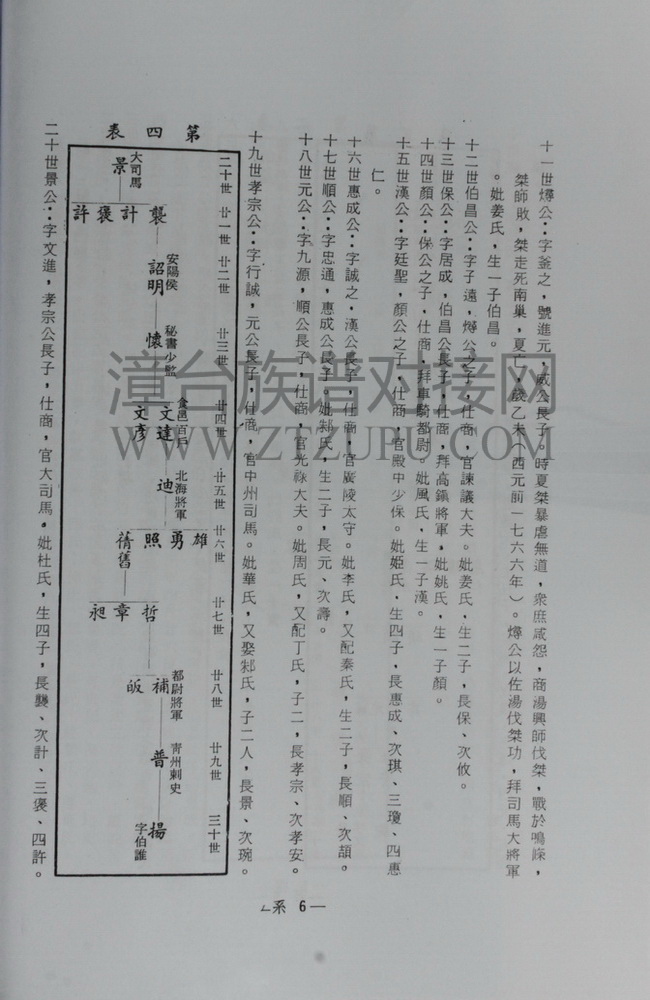 十一世燡公：字釜之，號進元，威公長子。時夏桀暴虐無道，衆庶咸怨，商湯興師伐桀，戰於鳴條，
桀師敗，桀走死南巢，夏亡，歲乙未（西元前一七六六年）。燡公以佐湯伐桀功，拜司馬大將軍
。妣姜氏，生一子伯昌。
十二世伯昌公：字子遠，燡公之子，仕商，官諫議大夫。妣姜氏，生二子，長保、次攸。
十三世保公：字居成，伯昌公長子，仕商，拜高鎭將軍，妣姚氏，生一子顏。
十四世顏公：保公之子，仕商，拜車騎都尉。妣風氏，生一子漢。
十五世漢公：字廷聖，顏公之子，仕商，官殿中少保。妣姬氏，生四子，長惠成、次琪、三瓊、四惠
仁。
十六世惠成公：字誠之，漢公長子，仕商，官廣陵太守。妣李氏，又配秦氏，生二子，長順、次頡。
十七世順公：字忠通，惠成公長子。妣邾氏，生二子，長元、次濤。
十八世元公：字九源，順公長子，仕商，官光祿大夫。妣周氏，又配丁氏，子二，長孝宗、次孝安。
十九世孝宗公：字行誠，元公長子，仕商，官中州司馬。妣華氏，又娶邾氏，子二人，長景、次琬。
第四表
二十世 廿一世 廿二世 廿三世 廿四世 廿五世 廿六世 廿七世 廿八世 廿九世 三十世
大司馬
景
襲 計 褒 許
安陽侯
詔明
秘書少監
懷
食邑百戶
文達
文彥
北海將軍
迪
雄 勇 照 蒨舊
哲 章 昶
都尉將軍
補 皈
青州刺史
普
揚
字伯誰
二十世景公：字文進，孝宗公長子，仕商，官大司馬。妣杜氏，生四子，長襲、次計、三褒、四許。
ㄥ系 6—
漳台族谱对接网
WWW.ZTZUPU.COM